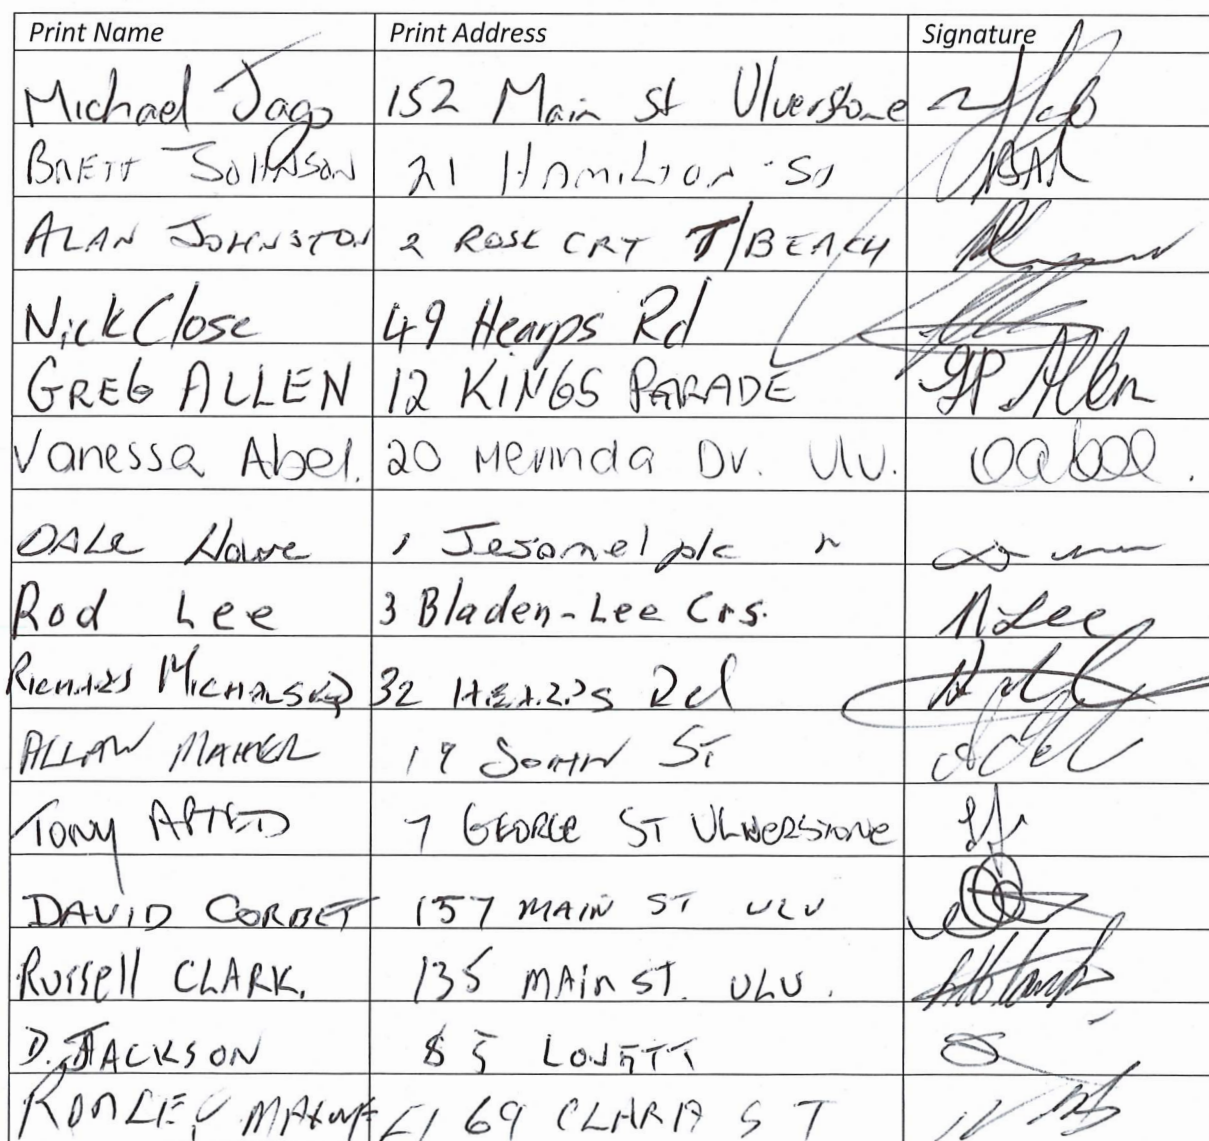 Print Name Print Address Signature
Michael Jago 152 Main St Ulverstone
BRETT JOHNSON 21 HAMILTON St
ALAN JOHNSTON 2 ROSE CRT T/BEACH
Nick Close 49 Hearps Rd
GREG ALLEN 12 KINGS PARADE GP Allen
Vanessa Abel. 20 Merinda Dv. Ulv. vabel.
DALE Howe 1 Jesamel plc
Rod Lee 3 Bladen-Lee Crs. R Lee
RICHARD MICHALSKI 32 Rd
ALLAN MAHER 19 JOHN ST
TONY APTED 7 GEORGE ST ULVERSTONE
DAVID CORBET 157 MAIN ST ULV
Russell CLARK. 135 MAin ST. ULV.
D. JACKSON 85 LOVETT
69 CLARA ST